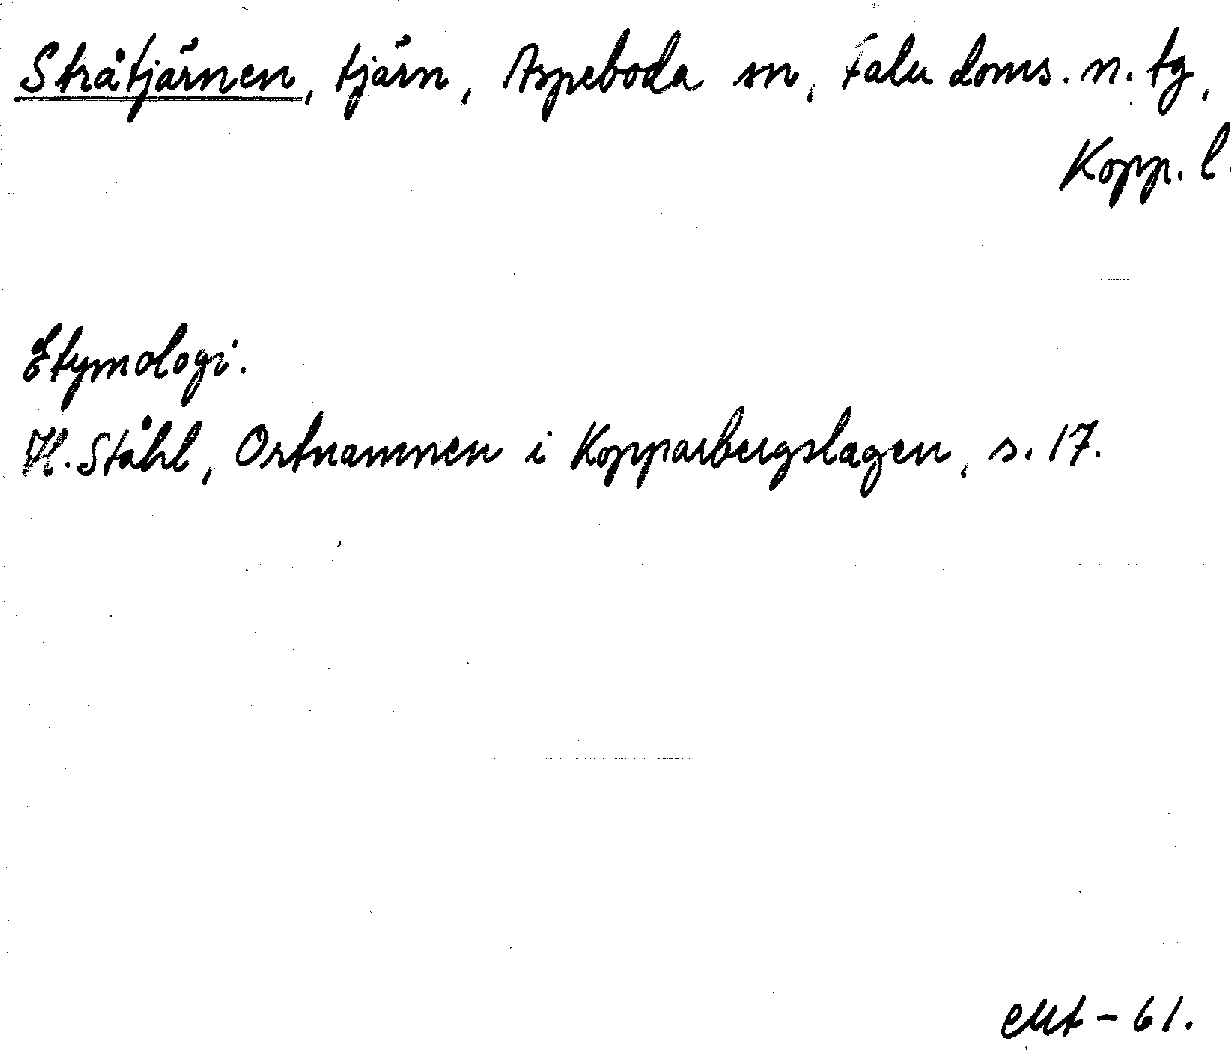 Stråtjärnen, tjärn, Aspeboda sn, Falu doms. n. tg,
Kopp. l.
Etymologi.
H. Ståhl, Ortnamnen i Kopparbergslagen, s. 17.
- 61.